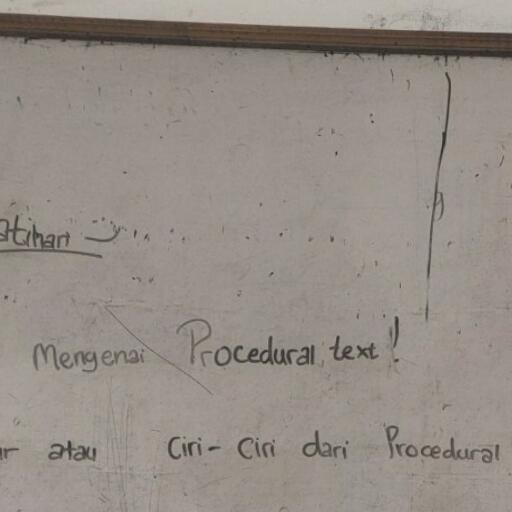 Mengenai Procedural text!
atau Ciri-Ciri dari Procedural